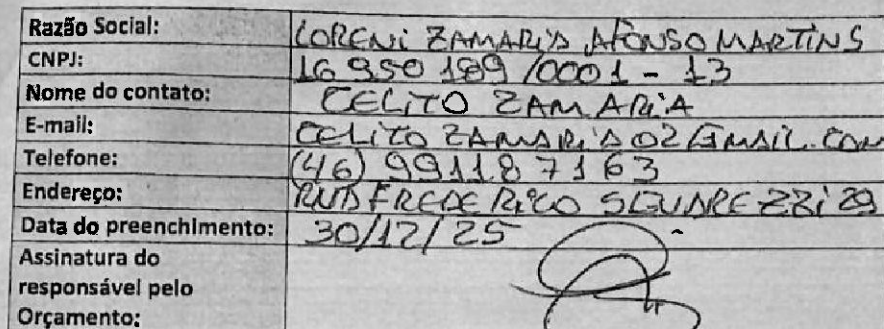 Razão Social: LORENI ZAMARIA AFONSO MARTINS
CNPJ: 16 950 189 /0001 - 13
Nome do contato: CELITO ZAMARIA
E-mail: CELITO ZAMARIA 02 @GMAIL.COM
Telefone: (46) 991187163
Endereço: RUA FREDERICO 29
Data do preenchimento: 30/12/25
Assinatura do
responsável pelo
Orçamento: